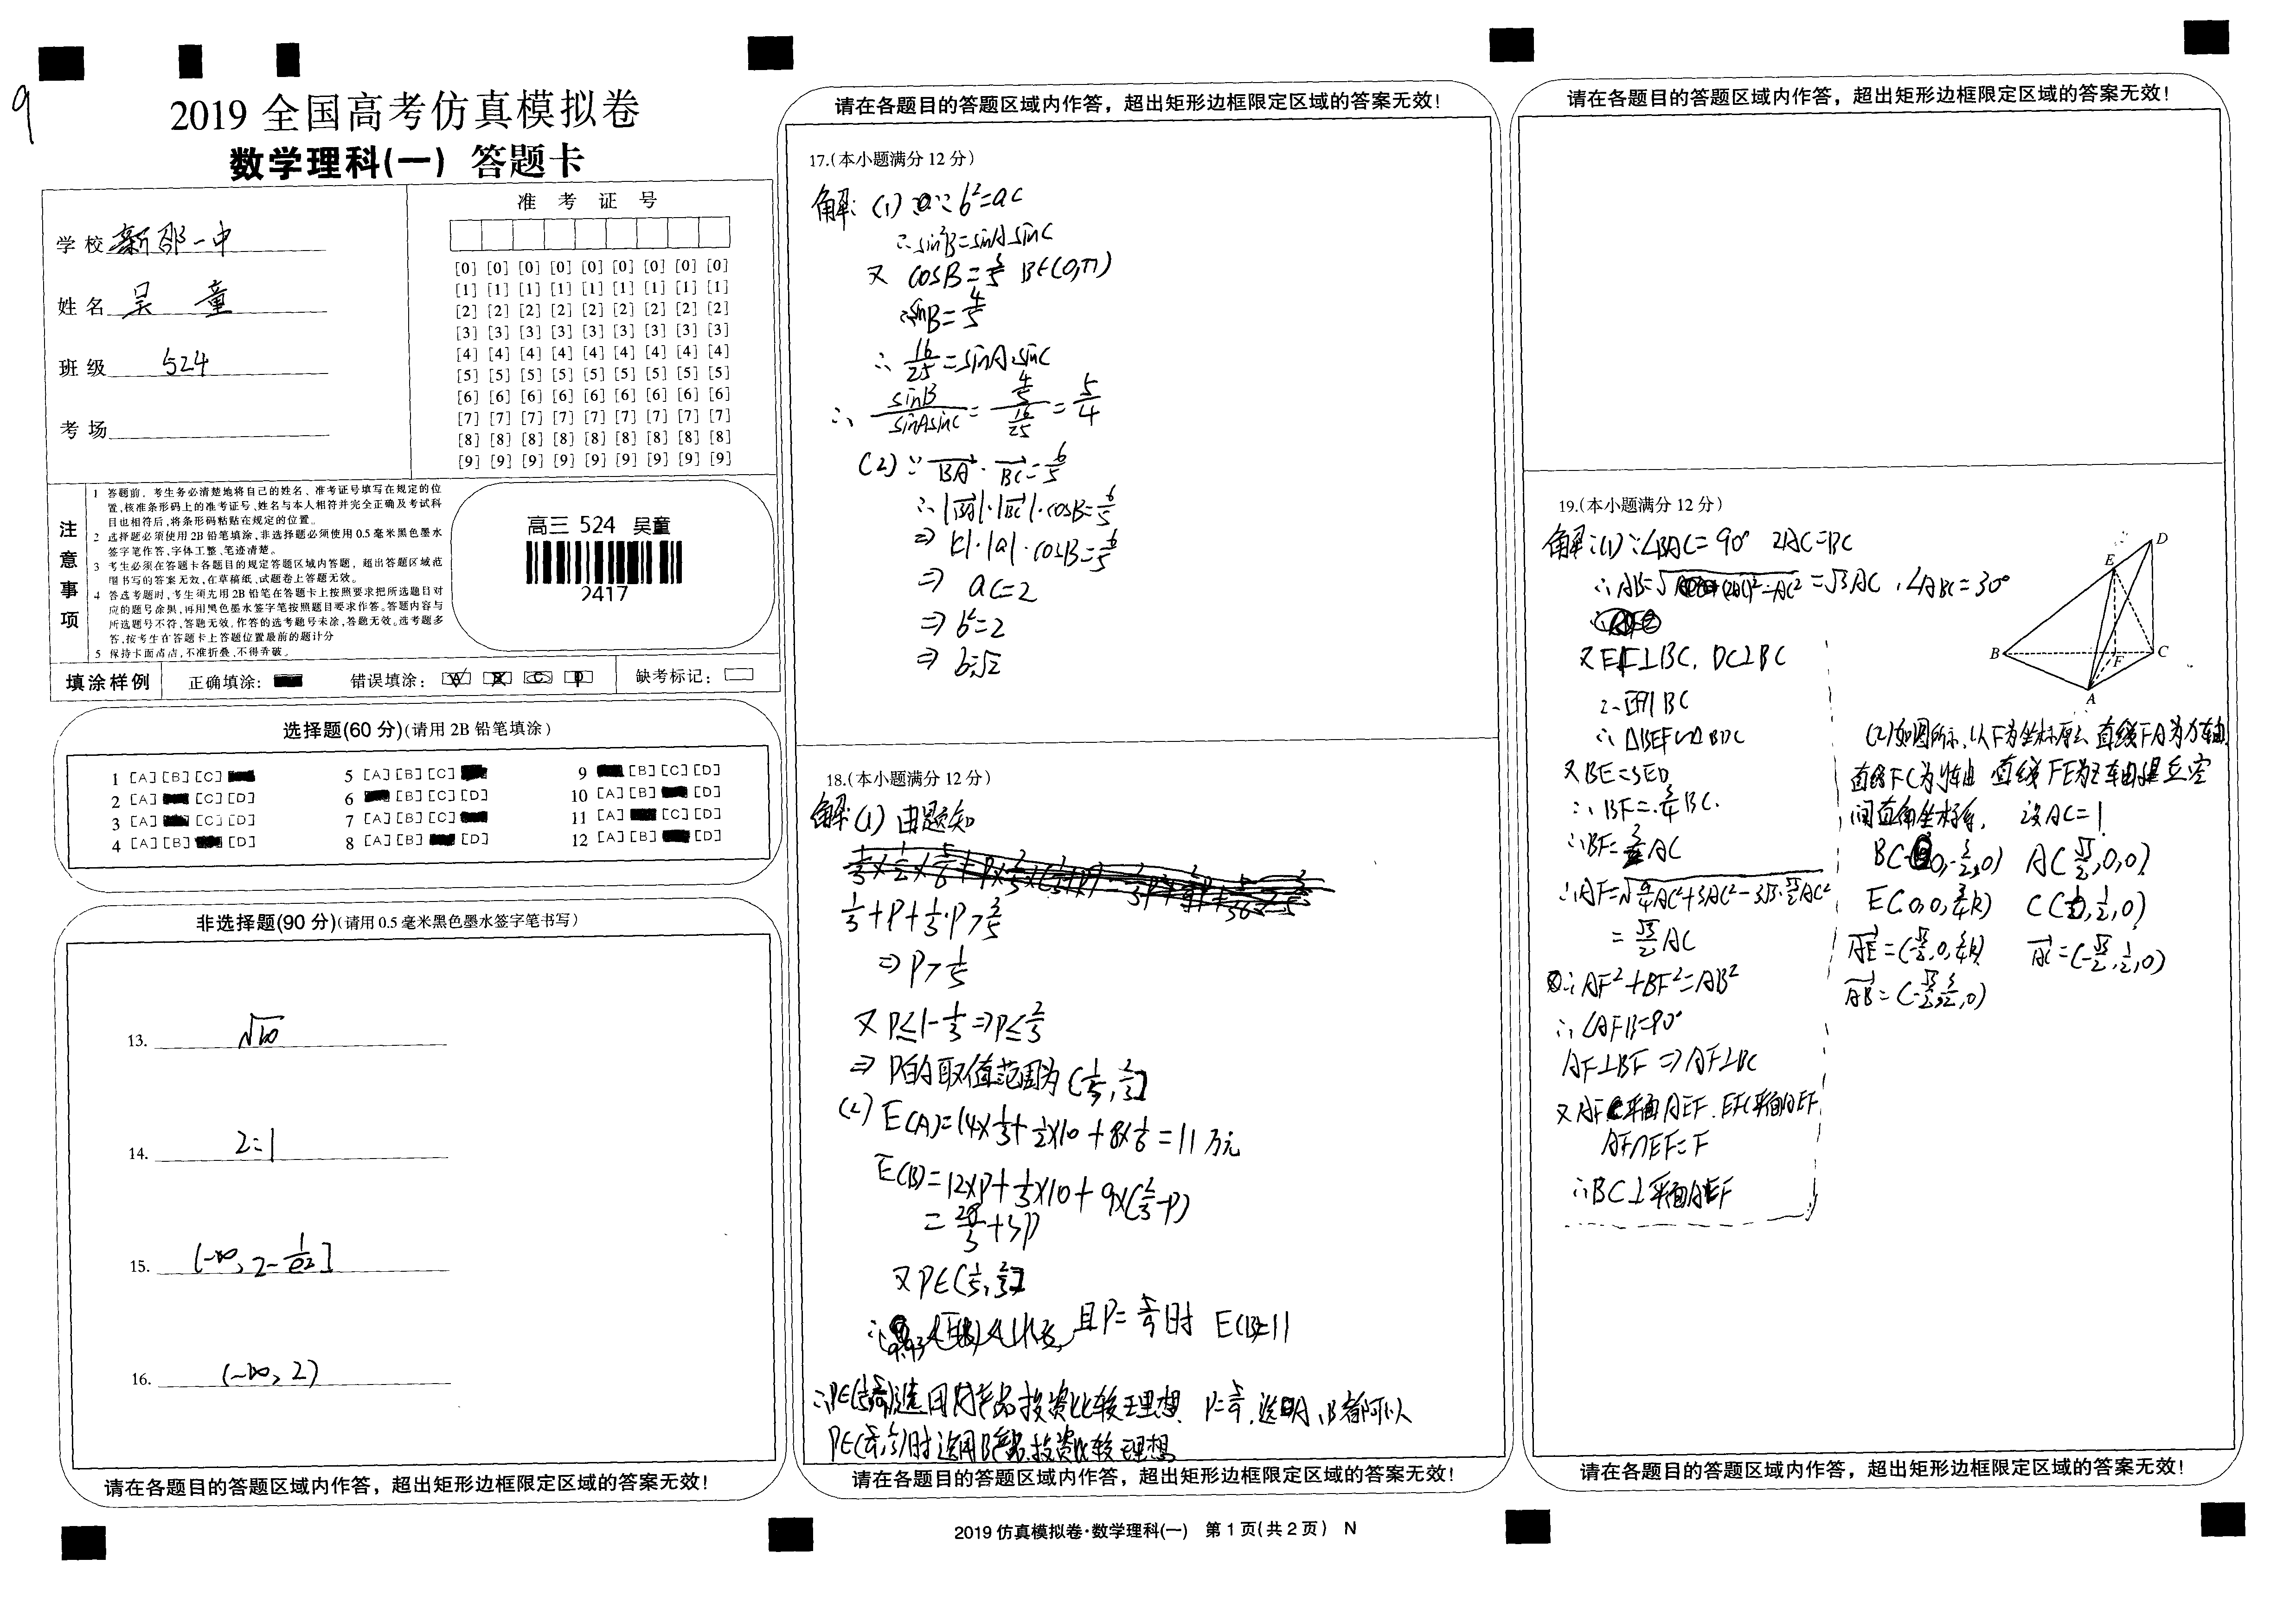 9
2019 全国高考仿真模拟卷
数学理科(一) 答题卡
学校 新邵一中
姓名 吴 童
班级 524
考场
准 考 证 号
[0] [0] [0] [0] [0] [0] [0] [0] [0]
[1] [1] [1] [1] [1] [1] [1] [1] [1]
[2] [2] [2] [2] [2] [2] [2] [2] [2]
[3] [3] [3] [3] [3] [3] [3] [3] [3]
[4] [4] [4] [4] [4] [4] [4] [4] [4]
[5] [5] [5] [5] [5] [5] [5] [5] [5]
[6] [6] [6] [6] [6] [6] [6] [6] [6]
[7] [7] [7] [7] [7] [7] [7] [7] [7]
[8] [8] [8] [8] [8] [8] [8] [8] [8]
[9] [9] [9] [9] [9] [9] [9] [9] [9]
注意事项
1 答题前，考生务必清楚地将自己的姓名、准考证号填写在规定的位
置,核准条形码上的准考证号、姓名与本人相符并完全正确及考试科
目也相符后,将条形码粘贴在规定的位置。
2 选择题必须使用2B铅笔填涂,非选择题必须使用0.5毫米黑色墨水
签字笔作答,字体工整、笔迹清楚。
3 考生必须在答题卡各题目的规定答题区域内答题，超出答题区域范
围书写的答案无效,在草稿纸、试题卷上答题无效。
4 答选考题时,考生须先用2B铅笔在答题卡上按照要求把所选题目对
应的题号涂黑,再用黑色墨水签字笔按照题目要求作答。答题内容与
所选题号不符,答题无效。作答的选考题号未涂,答题无效。选考题多
答,按考生在答题卡上答题位置最前的题计分
5 保持卡面清洁,不准折叠,不得弄破。
高三 524 吴童
2417
填涂样例 正确填涂： 错误填涂： 缺考标记：
选择题(60 分)(请用 2B 铅笔填涂)
1 [A] [B] [C] 5 [A] [B] [C] 9 [B] [C] [D]
2 [A] [C] [D] 6 [B] [C] [D] 10 [A] [B] [D]
3 [A] [C] [D] 7 [A] [B] [C] 11 [A] [C] [D]
4 [A] [B] [D] 8 [A] [B] [D] 12 [A] [B] [D]
非选择题(90 分)(请用 0.5 毫米黑色墨水签字笔书写)
13. √10
14. 2=1
15. (-∞, 2-1/e²]
16. (-∞, 2)
请在各题目的答题区域内作答，超出矩形边框限定区域的答案无效！
请在各题目的答题区域内作答，超出矩形边框限定区域的答案无效！
17.(本小题满分 12 分)
解: (1) ∵ b²=ac
∴ sin²B=sinA sinC
又 cosB=3/5 B∈(0,π)
∴sinB=4/5
∴ 16/25=sinA·sinC
∴ sinB/sinAsinC = 4/5 / 16/25 = 5/4
(2) ∵ BA · BC = 6/5
∴ |BA|·|BC|·cosB=6/5
⇒ |c|·|a|·cosB=6/5
⇒ ac=2
⇒ b²=2
⇒ b=√2
18.(本小题满分 12 分)
解: (1) 由题知
1/3+P+1/3·P>3/5
⇒ P>1/5
又 P≤1-1/3 ⇒P≤2/3
⇒ P的取值范围为 (1/5, 2/3]
(2) E(A)=14×1/3+1/2×10+8×1/6=11 万元
E(B)=12×P+1/3×10+9×(2/3-P)
=28/3+3P
又 P∈(1/5, 2/3]
且P=5/9时 E(B)=11
选用 产品投资比较理想 P=5/9, 选用A、B都可以
时选用B产品投资比较理想
请在各题目的答题区域内作答，超出矩形边框限定区域的答案无效！
2019 仿真模拟卷·数学理科(一) 第 1 页(共 2 页) N
请在各题目的答题区域内作答，超出矩形边框限定区域的答案无效！
19.(本小题满分 12 分)
解:(1) ∵∠BAC=90° 2AC=BC
∴ AB=√(2AC)²-AC² =√3AC , ∠ABC=30°
又EF⊥BC, DC⊥BC
∴ △BEF∽△BDC
又 BE=3ED
∴ BF=3/4BC.
∴BF=3/2AC
∴AF=√9/4AC²+3AC²-3√3·√3/2AC²
=√3/2AC
∴ AF²+BF²=AB²
∴ ∠AFB=90°
AF⊥BF ⇒ AF⊥BC
又 AF⊂平面AEF, EF⊂平面AEF
AF∩EF=F
∴BC⊥平面AEF
D
E
B
F
C
A
(2)如图所示, 以F为坐标原点 直线FA为x轴
直线FC为y轴 直线FE为z轴建立空
间直角坐标系, 设AC=1
B(0,-3/2,0) A(√3/2,0,0)
E(0,0,3/4k) C(0,1/2,0)
AE=(-√3/2,0,3/4k) AC=(-√3/2,1/2,0)
请在各题目的答题区域内作答，超出矩形边框限定区域的答案无效！